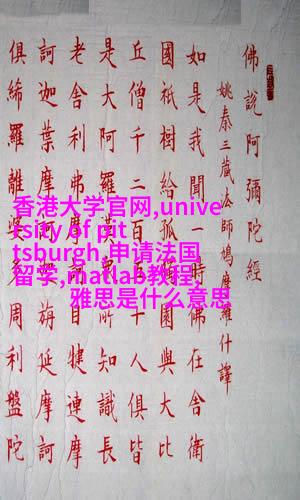 佛說阿彌陀經
姚秦三藏法師鳩摩羅什譯
如是我聞一時佛在舍衛
國祇樹給孤園與大比
丘僧千二百十人俱皆
是大阿羅漢所知識長
老舍利弗摩目犍連摩
訶迦葉摩訶旃延摩訶
俱絺羅離婆周利盤陀
香港大学官网,unive
rsity of pit
tsburgh,申请法国
留学,matlab教程,
雅思是什么意思